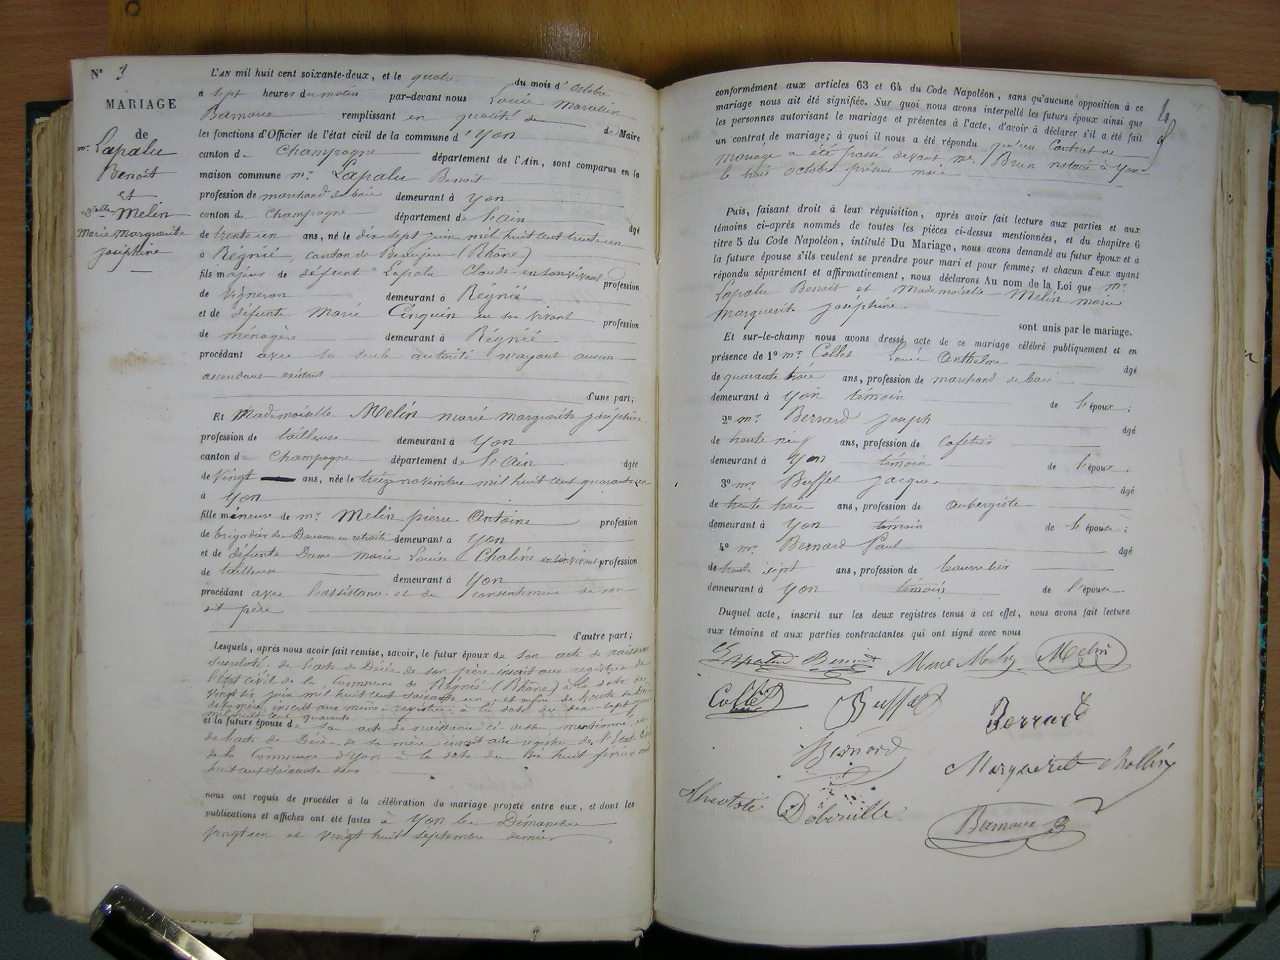 N° 3
MARIAGE
de
Mr. Lapalu
Benoit
et
Delle Melin
Marie Marguerite
Joséphine
L'AN mil huit cent soixante-deux, et le du mois d'Octobre
à sept heures du matin par-devant nous Louis Marcelin
remplissant en qualité de Maire
les fonctions d'Officier de l'état civil de la commune d'Yon
canton de Champagne département de l'Ain, sont comparus en la
maison commune Mr. Lapalu Benoit
profession de marchand de bois demeurant à Yon
canton de Champagne département de l'ain âgé
de trente un ans, né le dix sept juin mil huit cent trente un
à Régnié, canton de Beaujeu (Rhône)
fils majeur de défunt Lapalu Claude en son vivant profession
de vigneron demeurant à Régnié
et de défunte Marie Cinquin en son vivant profession
de ménagère demeurant à Régnié
procédant avec la seule autorité n'ayant aucun
ascendans existant
d'une part;
Et Mademoiselle Melin marie marguerite joséphine
profession de tailleuse demeurant à Yon
canton de Champagne département de l'ain âgée
de vingt ans, née le treize novembre mil huit cent quarante un
à Yon
fille mineure de Mr. Melin pierre Antoine profession
de brigadier des Douanes en retraite demeurant à Yon
et de défunte Dame Marie Louise Choline en son vivant profession
de tailleuse demeurant à Yon
procédant avec l'assistance et du consentement de son
dit père
d'autre part;
Lesquels, après nous avoir fait remise, savoir, le futur époux de son acte de naissance
susdaté, de l'acte de Décès de son père inscrit aux registres de
l'état civil de la Commune de Régnié (Rhône) à la date du
vingt six juin mil huit cent soixante un et enfin de l'acte de Décès
de sa mère, inscrit aux mêmes registres à la date du dix sept
mil huit cent quarante
et la future épouse de son acte de naissance ci dessus mentionné, et
de l'acte de Décès de sa mère inscrit aux registres de l'état civil
de la Commune d'Yon à la date du huit février
huit cent soixante deux
nous ont requis de procéder à la célébration du mariage projeté entre eux, et dont les
publications et affiches ont été faites à Yon les Dimanches
vingt un et vingt huit septembre dernier
conformément aux articles 63 et 64 du Code Napoléon, sans qu'aucune opposition à ce
mariage nous ait été signifiée. Sur quoi nous avons interpellé les futurs époux ainsi que
les personnes autorisant le mariage et présentes à l'acte, d'avoir à déclarer s'il a été fait
un contrat de mariage; à quoi il nous a été répondu qu'un Contrat de
mariage a été passé devant Me. Brun notaire à Yon
le huit octobre présent mois
Puis, faisant droit à leur réquisition, après avoir fait lecture aux parties et aux
témoins ci-après nommés de toutes les pièces ci-dessus mentionnées, et du chapitre 6
titre 5 du Code Napoléon, intitulé Du Mariage, nous avons demandé au futur époux et à
la future épouse s'ils veulent se prendre pour mari et pour femme; et chacun d'eux ayant
répondu séparément et affirmativement, nous déclarons Au nom de la Loi que Mr.
Lapalu Benoit et Mademoiselle Melin marie
marguerite joséphine
sont unis par le mariage.
Et sur-le-champ nous avons dressé acte de ce mariage célébré publiquement et en
présence de 1° Mr. Collet Louis Anthelme âgé
de quarante trois ans, profession de marchand de bois
demeurant à Yon témoin de l'époux;
2° Mr. Berrard Joseph âgé
de trente neuf ans, profession de cafetier
demeurant à Yon témoin de l'époux.
3° Mr. Buffet Jacques âgé
de trente trois ans, profession de aubergiste
demeurant à Yon témoin de l'épouse;
4° Mr. Bernard Paul âgé
de trente sept ans, profession de bourrelier
demeurant à Yon témoin de l'épouse.
Duquel acte, inscrit sur les deux registres tenus à cet effet, nous avons fait lecture
aux témoins et aux parties contractantes qui ont signé avec nous
Lapalud Benoit Marie Melin Melin
Collet Buffet Berrard
Bernard